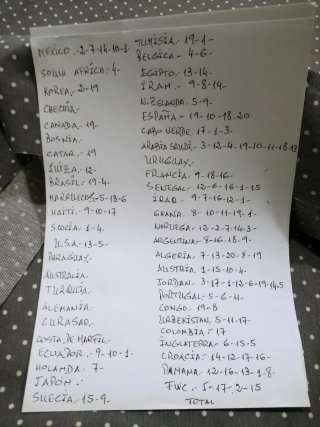 MEXICO.-2-7-14-10-1-
SOUTH AFRICA.-4-
KOREA.-2-19
CHECHIA.-
CANADA.-19-
BOSNIA.
CATAR.-19
SUIZA.-12-
BRASIL.-19-4-
MARRUECOS.-5-18-6
HAITI.-9-10-17
SCOCIA.-1-4-
USA.-13-5-
PARAGUAY.
AUSTRALIA.
TURQUIA.
ALEMANIA.-
CURASAO.
COSTA DE MARFIL.
ECUADOR.-9-10-1-
HOLAMDA.7-
JAPÓN.-
SUECIA.15-9-
TUNISIA.-19-1-
BELGICA.-4-6-
EGIPTO.-13-14-
IRAN.-9-8-14-
N.ZELANDA.-5-9-
ESPAÑA.-19-10-18-20
CABO VERDE.-17-1-3-
ARABIA SAUDI.-3-12-4-19-10-11-18-13
URUGUAY.-
FRANCIA.-9-18-16-
SENEGAL.-12-6-16-1-15
IRAQ.-9-7-16-12-1-
GHANA.-8-10-11-19-1-
NORUEGA.-12-2-7-14-3-
ARGENTINA.-8-16-18-9-
ALGERIA.-7-13-20-8-19
AUSTRIA.-1-15-10-4-
JORDAN.-3-17-1-12-6-19-14-5
PORTUGAL.-5-6-11-
CONGO.-19-8
UZBEKISTAN.-5-11-17-
COLOMBIA.-17
INGLATERRA.-6-15-5
CROACIA.-14-12-17-16-
PANAMA.-12-16-13-1-8-
FWC.-5-17-2-15
TOTAL